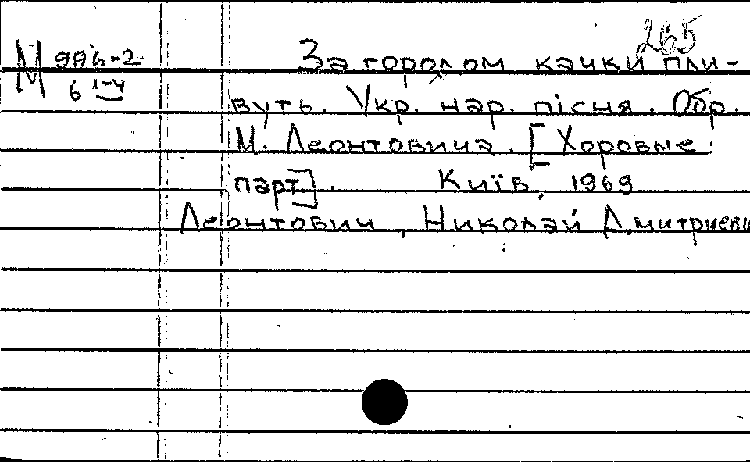 265
М 996-2 За городом качки пли-
6 1-4 вуть. Укр. нар. пісня. Обр.
М. Леонтовича. [Хоровые
парт]. Київ, 1969
Леонтович, Николай Дмитриеви